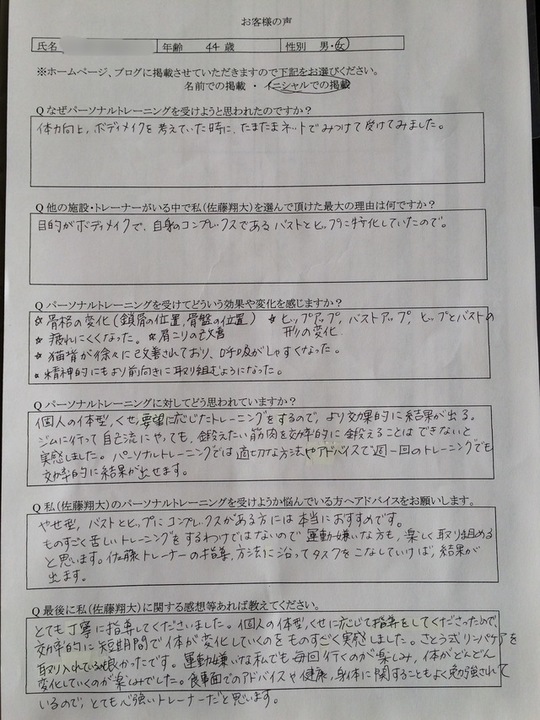 お客様の声
氏名 年齢 44 歳 性別 男・女
※ホームページ、ブログに掲載させていただきますので下記をお選びください。
名前での掲載 ・ イニシャルでの掲載
Q なぜパーソナルトレーニングを受けようと思われたのですか？
体力向上、ボディメイクを考えていた時に、たまたまネットでみつけて受けてみました。
Q 他の施設・トレーナーがいる中で私(佐藤翔大)を選んで頂けた最大の理由は何ですか？
目的がボディメイクで、自身のコンプレックスであるバストとヒップに特化していたので。
Q パーソナルトレーニングを受けてどういう効果や変化を感じますか？
☆ 骨格の変化(鎖骨の位置、骨盤の位置) ☆ ヒップアップ、バストアップ、ヒップとバストの
形の変化
☆ 疲れにくくなった。 ☆ 肩こりの改善
☆ 猫背が徐々に改善されており、呼吸がしやすくなった。
☆ 精神的にもより前向きに取り組むようになった。
Q パーソナルトレーニングに対してどう思われていますか？
個人の体型、くせ、要望に応じたトレーニングをするので、より効果的に結果が出る。
ジムに行って自己流にやっても、鍛えたい筋肉を効率的に鍛えることはできないと
実感しました。パーソナルトレーニングでは適切な方法やアドバイスで週一回のトレーニングでも
効率的に結果が出せます。
Q 私(佐藤翔大)のパーソナルトレーニングを受けようか悩んでいる方へアドバイスをお願いします。
やせ型、バストとヒップにコンプレックスがある方には本当におすすめです。
ものすごく苦しいトレーニングをするわけではないので運動嫌いな方も、楽しく取り組める
と思います。佐藤トレーナーの指導、方法に沿ってタスクをこなしていけば、結果が
出ます。
Q 最後に私(佐藤翔大)に関する感想等あれば教えてください。
とても丁寧に指導してくださいました。個人の体型、くせに応じて指導をしてくださったので、
効率的に短期間で体が変化していくのをものすごく実感しました。さとう式リンパケアを
取り入れている点も良かったです。運動嫌いな私でも毎回行くのが楽しみ、体がどんどん
変化していくのが楽しみでした。食事面でのアドバイスや健康、身体に関することもよく勉強されて
いるので、とても心強いトレーナーだと思います。